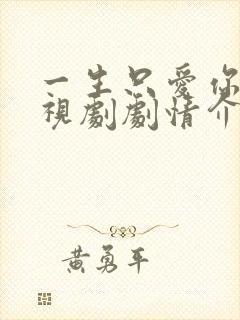 一生只愛你
視劇劇情介
黃勇平